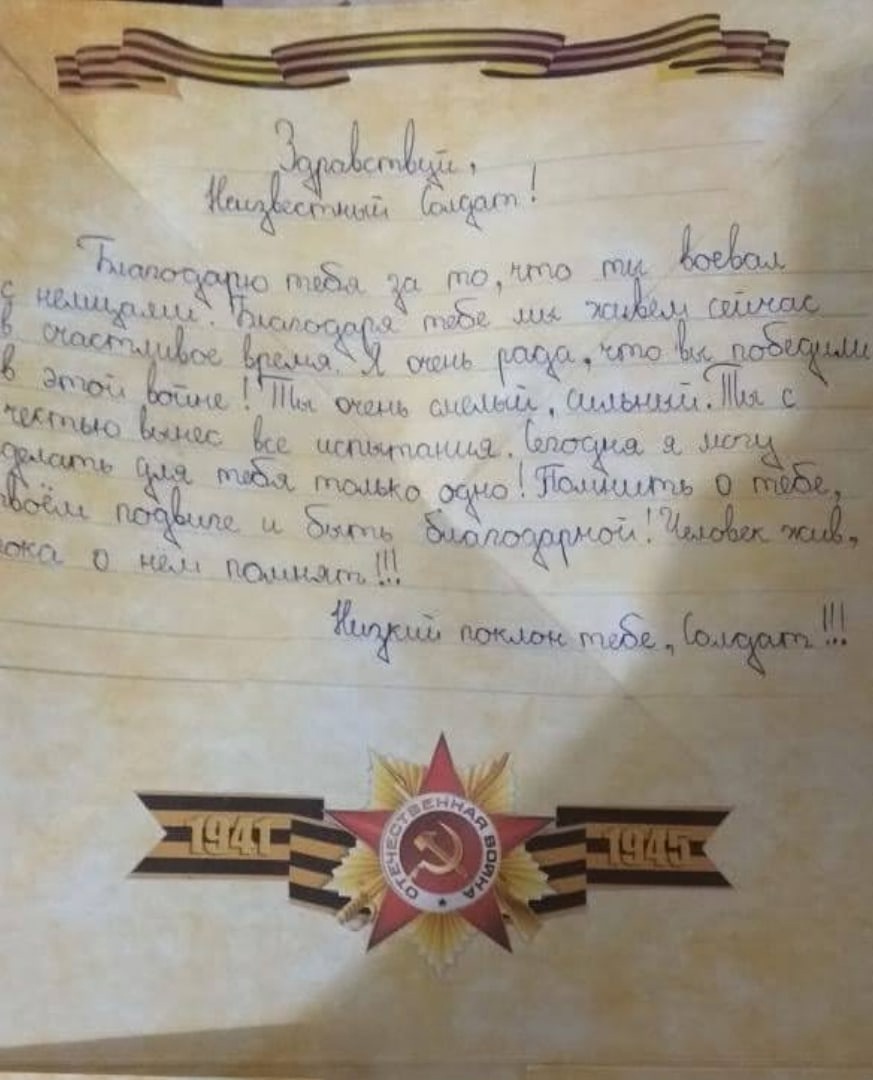 Здравствуй,
Неизвестный Солдат!
Благодарю тебя за то, что ты воевал
с немцами. Благодаря тебе мы живём сейчас
в счастливое время. Я очень рада, что вы победили
в этой войне! Ты очень смелый, сильный. Ты с
честью вынес все испытания. Сегодня я могу
сделать для тебя только одно! Помнить о тебе,
твоём подвиге и быть благодарной! Человек жив,
пока о нём помнят!!!
Низкий поклон тебе, Солдат!!!
ОТЕЧЕСТВЕННАЯ ВОЙНА
1941 1945